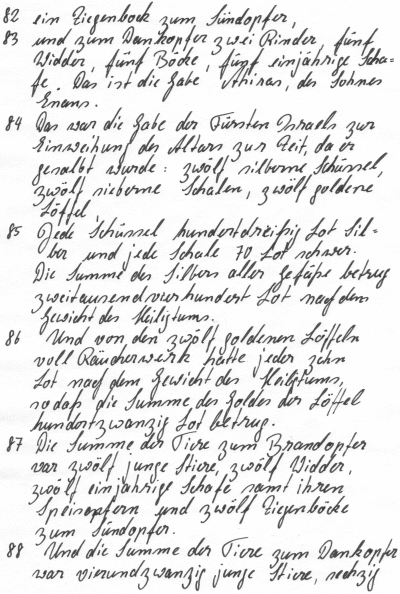 82 ein Ziegenbock zum Sündopfer,
83 und zum Dankopfer zwei Rinder, fünf
Widder, fünf Böcke, fünf einjährige Scha=
fe. Das ist die Gabe Ahiras, des Sohnes
Enans.
84 Das war die Gabe der Fürsten Israels zur
Einweihung des Altars zur Zeit, da er
gesalbt wurde: zwölf silberne Schüssel,
zwölf sieberne Schalen, zwölf goldene
Löffel,
85 Jede Schüssel hundertdreißig Lot Sil=
ber und jede Schale 70 Lot schwer.
Die Summe des Silbers aller Gefäße betrug
zweitausendvierhundert Lot nach dem
Gewicht des Heiligtums.
86 Und von den zwölf goldenen Löffeln
voll Räucherwerk hatte jeder zehn
Lot nach dem Gewicht des Heiligtums,
sodaß die Summe des Goldes der Löffel
hundertzwanzig Lot betrug.
87 Die Summe der Tiere zum Brandopfer
war zwölf junge Stiere, zwölf Widder,
zwölf einjährige Schafe samt ihren
Speisopfern und zwölf Ziegenböcke
zum Sündopfer.
88 Und die Summe der Tiere zum Dankopfer
war vierundzwanzig junge Stiere, sechzig